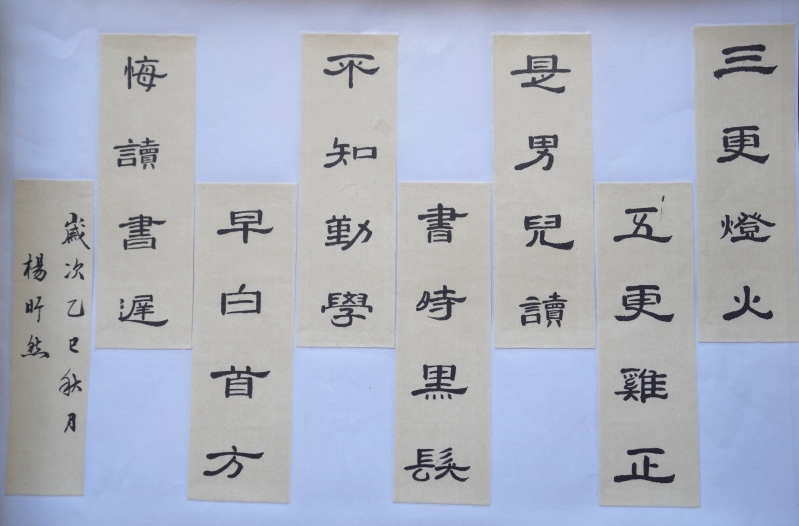 三更燈火
五更雞正
是男兒讀
書時黒髮
不知勤學
早白首方
悔讀書遲
歲次乙巳秋月
楊昕然